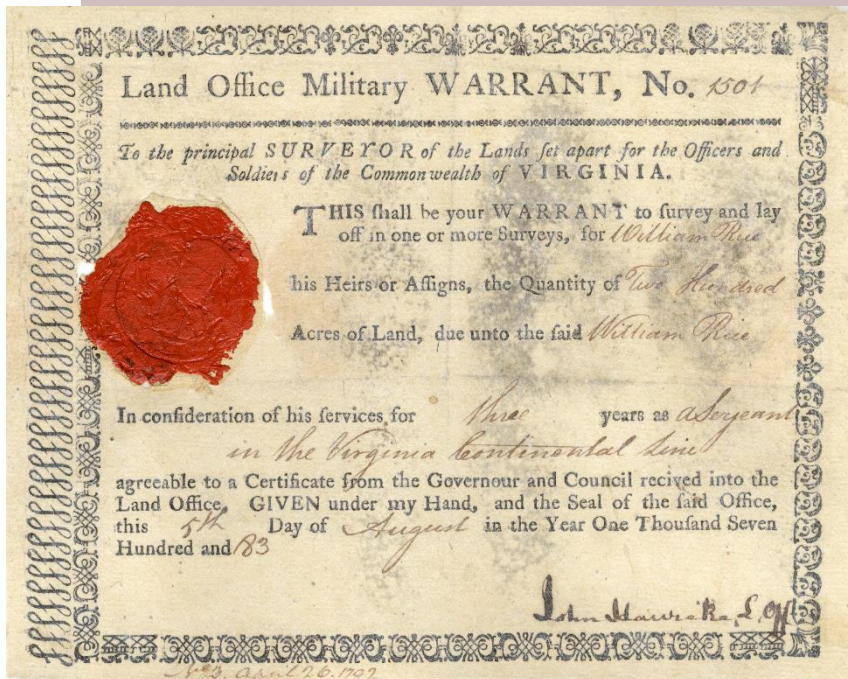 Land Office Military WARRANT, No. 1501
To the principal SURVEYOR of the Lands ſet apart for the Officers and
Soldiers of the Commonwealth of VIRGINIA.
THIS ſhall be your WARRANT to ſurvey and lay
off in one or more Surveys, for William Rice
his Heirs or Aſſigns, the Quantity of Two Hundred
Acres of Land, due unto the ſaid William Rice
In conſideration of his ſervices for three years as a Serjeant
in the Virginia Continental Line
agreeable to a Certificate from the Governour and Council recived into the
Land Office. GIVEN under my Hand, and the Seal of the ſaid Office,
this 5th Day of August in the Year One Thouſand Seven
Hundred and 83
John L. Off
April 26. 1792